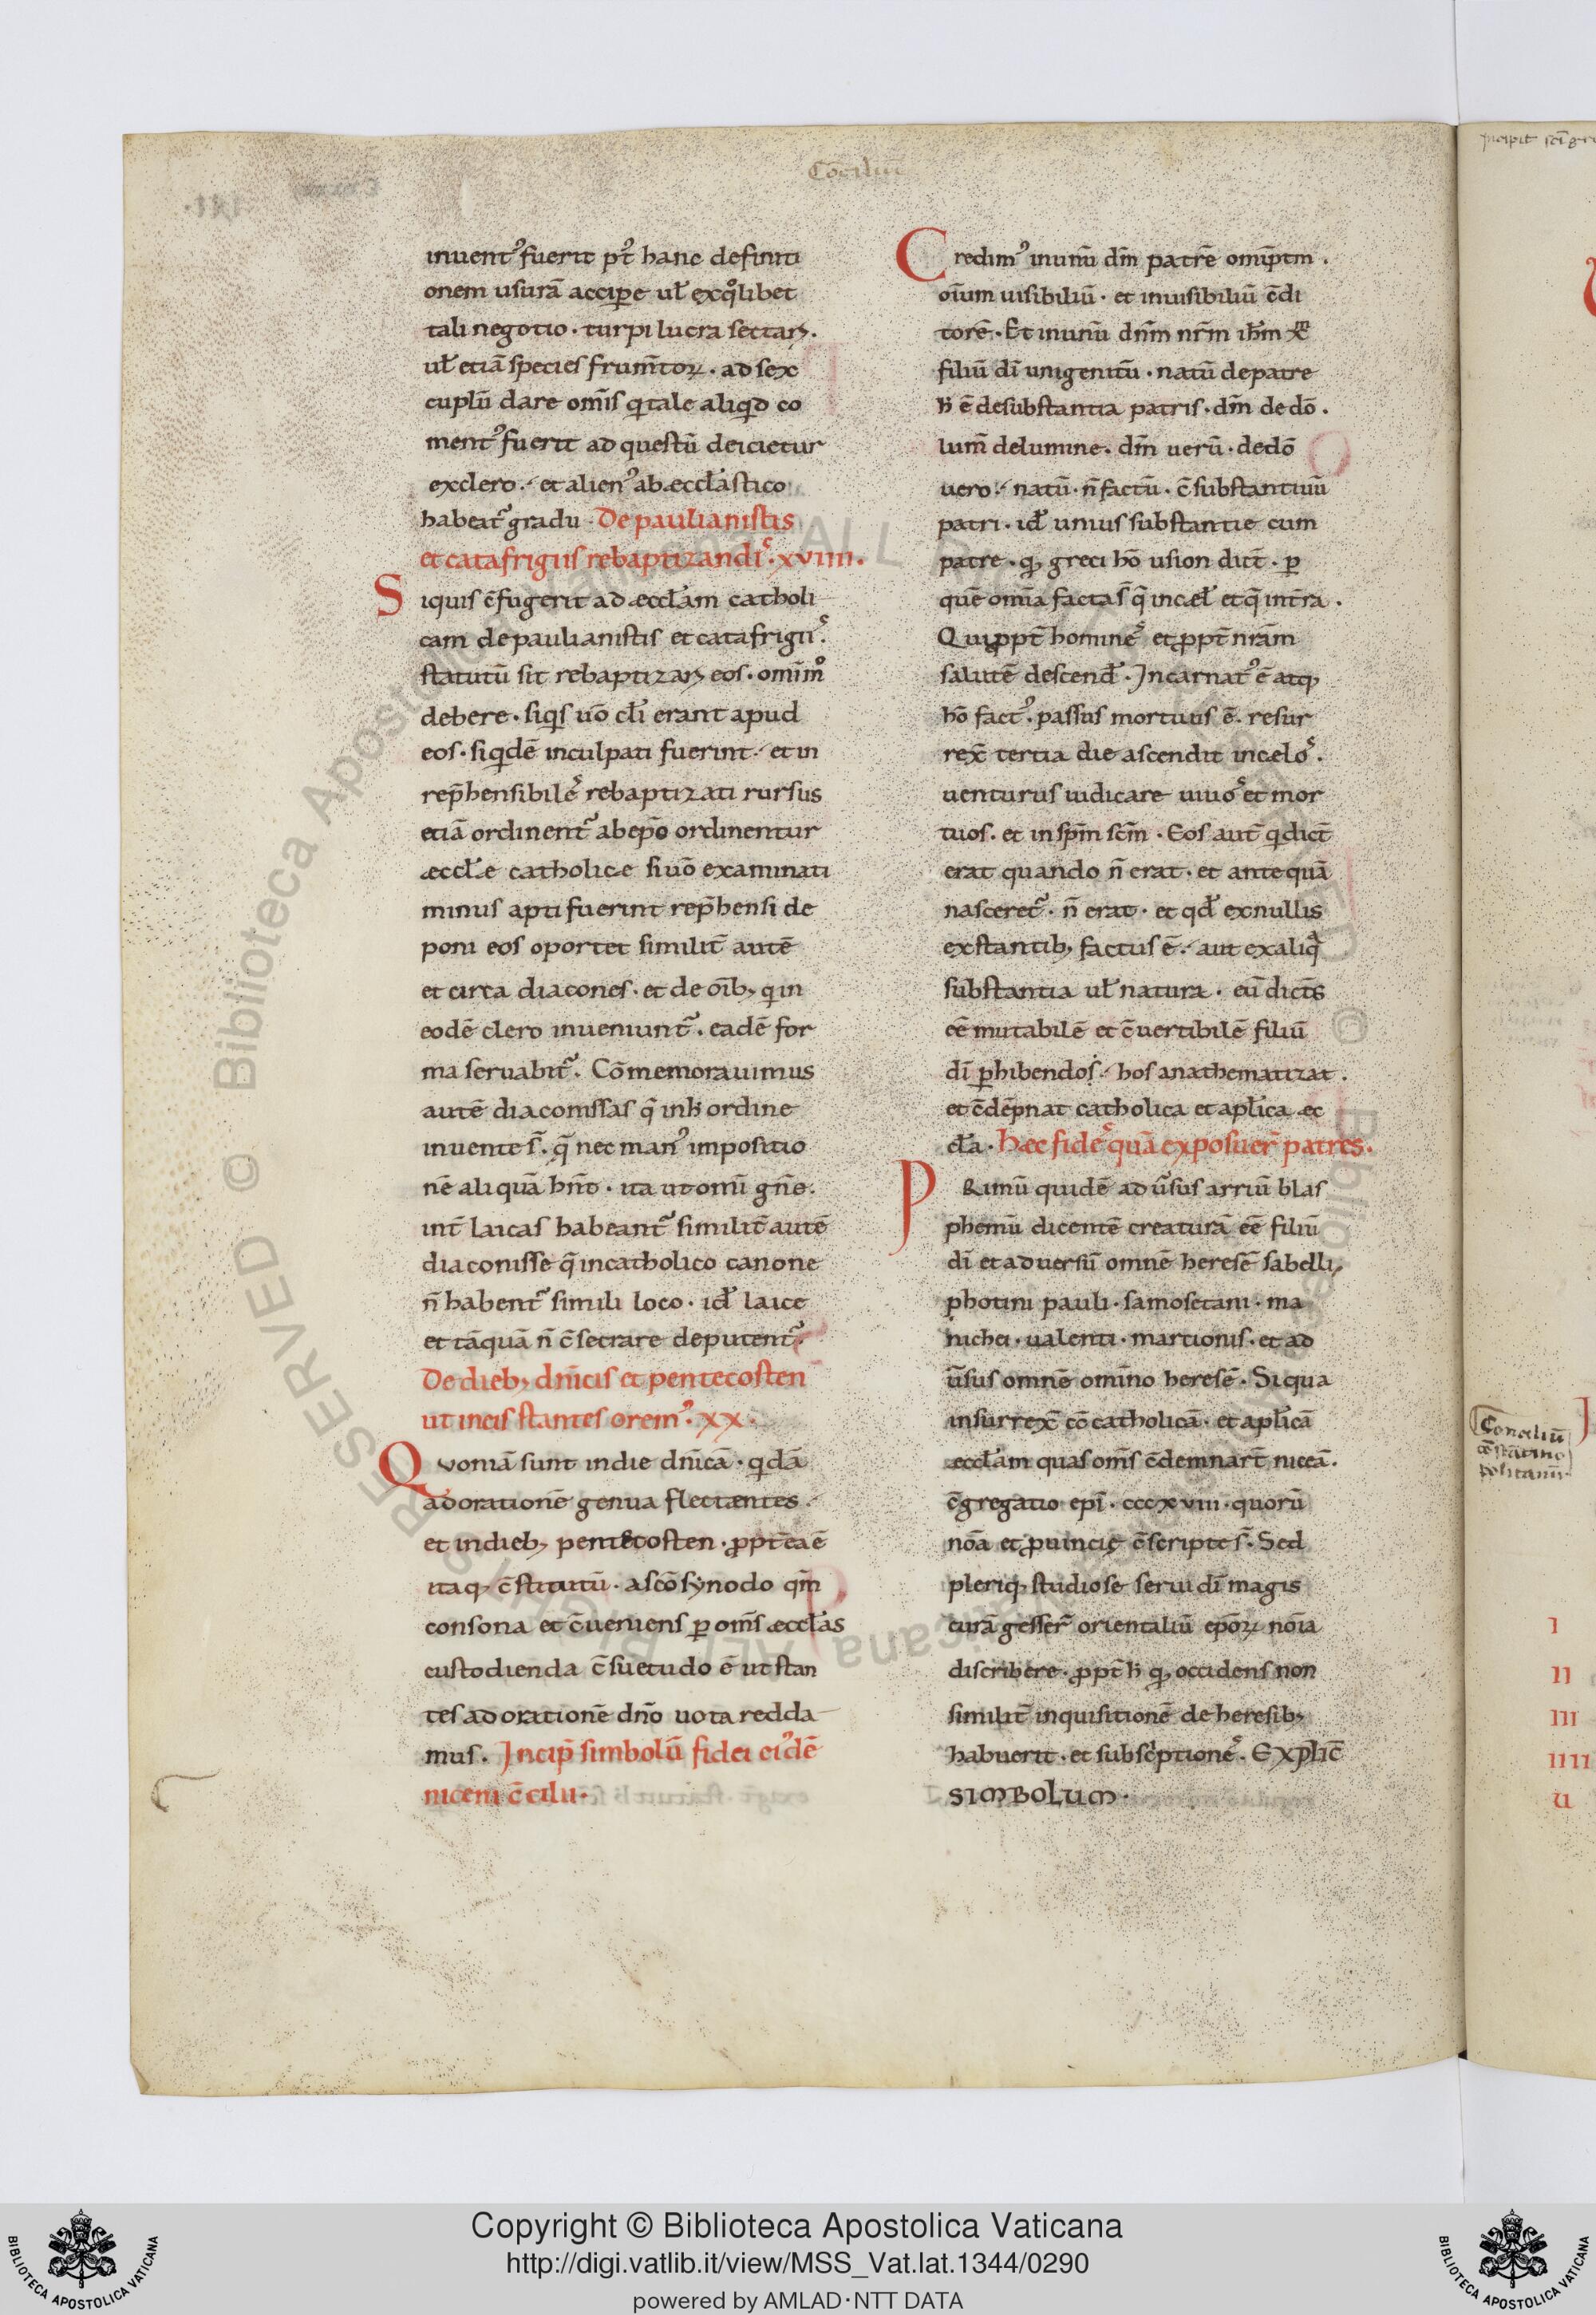 Cōciliū
inuentꝰ fuerit pꝰt hanc definiti
onem usurā accipe uł exqͦlibet
tali negotio · turpi lucra sectari.
uł etiā species frum̄toꝝ · ad sex
cuplū dare om̄s q̇ tale aliqd co
mentꝰ fuerit ad questū deicietur
exclero. et alienꝰ ab æccłastico
habeat᷑ gradu · De paulianistis
et catafrigiis rebaptizandis · xviiii.
Siquis c̄fugerit ad æccłam catholi
cam de paulianistis et catafrigiis.
statutū sit rebaptizari eos · omīmͦ
debere · siqs uō cłi erant apud
eos · siqdē inculpati fuerint et in
rep̄hensibiles rebaptizati rursus
etiā ordinent᷑ ab epō ordinentur
æccłæ catholicæ si uō examinati
minus apti fuerint rep̄hensi de
poni eos oportet similit̄ autē
et circa diacones · et de oīb; q in
eodē clero inueniunt᷑. eadē for
ma seruabit᷑. Cōmemorauimus
autē diaconissas q̄ in h̄ ordine
inuente s̄. q̄ nec manꝰ impositio
nē aliquā hn̄t · ita ut omī gn̄e.
int̄ laicas habeant᷑ similit̄ autē
diaconisse q̄ in catholico canone
n̄ habent᷑ simili loco · id̄ laice
et tāquā n̄ c̄secrare deputent᷑.
De dieb; dn̄icis et pentecosten
ut in eis stantes oremꝰ. xx.
Quoniā sunt in die dn̄ica · qdā
ad orationē genua flectæntes
et in dieb; pentecosten · ppt̄ea ē
itaq; c̄stitutū · a scō synodo qm̄
consona et c̄ueniens p om̄s æccłas
custodienda c̄suetudo ē ut stan
tes ad orationē dn̄o uota redda
mus. Incip̄ simbolū fidei eiꝰdē
niceni c̄cilii.
Credimꝰ in unū dm̄ patrē omīptm.
oīum uisibiliū · et inuisibiliū c̄di
torē · Et in unū dn̄m nr̄m ihm̄ xp̄
filiū dī unigenitū · natū de patre
h̄ ē de substantia patris · dm̄ de dō.
lum̄ de lumine. dm̄ uerū · de dō
uero. natū · n̄ factū · c̄substantiuū
patri · id̄ unius substantie cum
patre · q; greci hō usion dic̄t · p
quē omīa facta s̄ q̄ in cæł et q̄ in t̄ra.
Qui ppt̄ homines et ppt̄ nrām
salutē descend̄ · Incarnatꝰ ē atq;
hō factꝰ. passus mortuus ē. resur
rex̄ tertia die ascendit in celos.
uenturus iudicare uiuos et mor
tuos. et in spm̄ scm̄ · Eos aut̄ q dic̄t
erat quando n̄ erat · et ante quā
nasceret᷑ · n̄ erat · et qd̄ ex nullis
exstantib; factus ē. aut ex aliqͣ
substantia uł natura · eū dic̄ts
eē mutabilē et c̄uertibilē filiū
dī phibendos. hos anathematizat.
et c̄dēpnat catholica et apłica æc
cła · Hæc fides quā exposuer̄ patres.
PRimū quidē aduersus arriū blas
phemū dicentē creaturā eē filiū
dī et aduersū omnē heresē sabelli,
photini pauli · samosetani · ma
nichei · ualenti · martionis · et ad
ūsus omnē omīno heresē · Si qua
insurrex̄ cō catholicā · et apłicā
æccłam quas om̄s c̄demnar̄t niceā.
c̄gregatio epī · cccxviii · quorū
noā et puincię c̄scripte s̄. Sed
pleriq; studiose serui dī magis
curā gesser̄ orientaliū epōꝝ noīa
discribere · ppt̄ h̄ q; occidens non
similit̄ inquisitionē de heresib;
habuerit · et subscptiones. Explic̄
SIMBOLUM ·
Incipit sc̄i gre
Conciliū
c̄stātino
politanū
I
II
III
IIII
U
Copyright © Biblioteca Apostolica Vaticana
http://digi.vatlib.it/view/MSS_Vat.lat.1344/0290
powered by AMLAD·NTT DATA
BIBLIOTECA APOSTOLICA VATICANA
BIBLIOTECA APOSTOLICA VATICANA